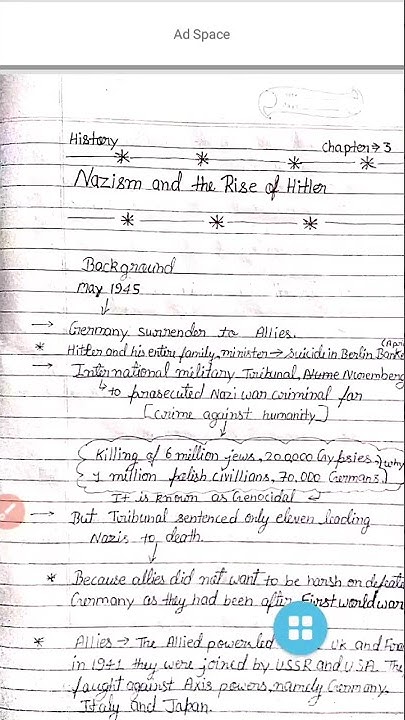 Ad Space
History Chapter → 3
Nazism and the Rise of Hitler
Background
May 1945
→ Germany surrender to Allies.
* Hitler and his entire family, minister → suicide in Berlin Banke
→ International military Tribunal, Nume Nuremberg
to prasecuted Nazi war criminal for
[crime against humanity]
Killing of 6 million jews, 200,000 Gypsies, why
1 million polish civillians, 70,000 Germans.
It is known as Genocidal
→ But Tribunal sentenced only eleven leading
Nazis to death.
* Because allies did not want to be harsh on defeate
Germany as they had been after First world war
* Allies → The Allied powers led UK and
in 1941 they were joined by USSR and USA. The
faught against Axis powers, namely Germany.
Italy and Japan.